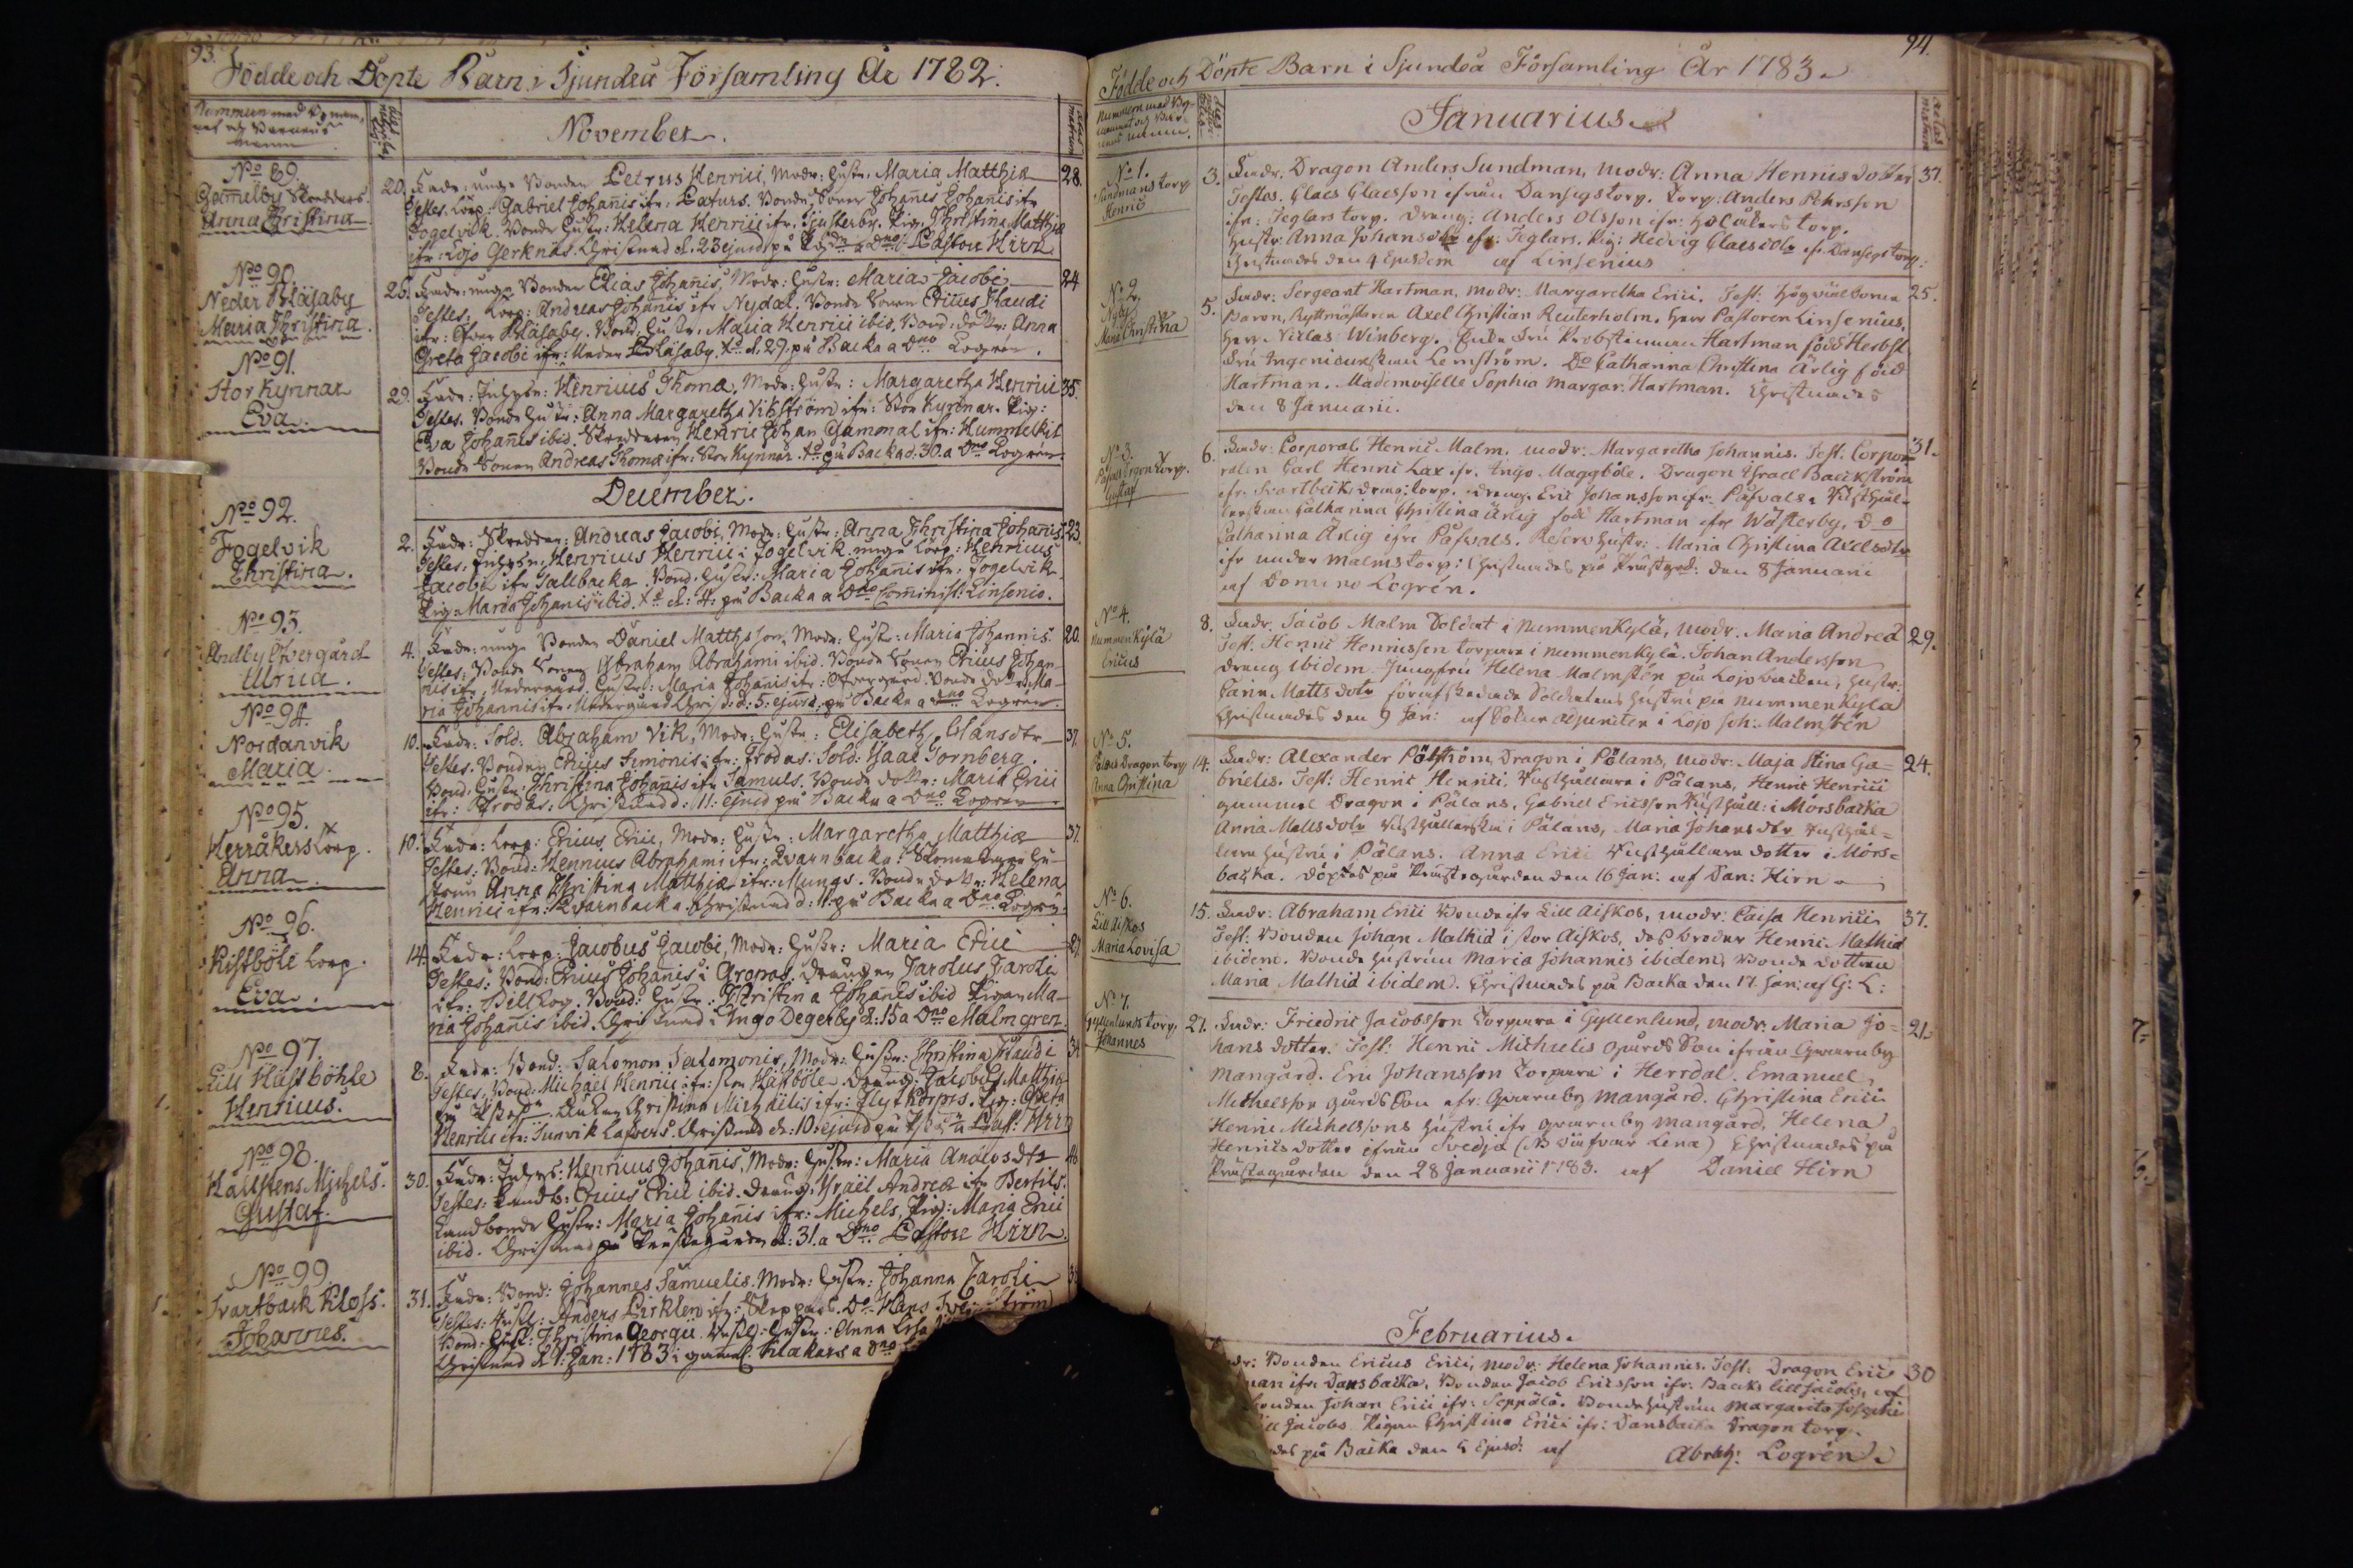 93.
Födde och Döpte Barn i Sjundeå Församling År 1782.
November.
No 89.
Gamelby Skredders.
Anna Christina
20. Fadr: unge Bonden Petrus Henrici, Modr: Hustr: Maria Matthiæ 28.
Testes. Torp: Gabriel Johañis ifr: Paturs. Bonde Sonen Johañes Johañis ifr
Fogelvik. Bonde Hustr: Helena Henrici ifr. Tjusterby. Pig. Christina Matthiæ
ifr: Lojo Gerknäs. Christnad d. 23 ejusd på a Dno Pastore Hirn
No 90.
Neder Bläsaby
Maria Christina.
25. Fadr: unge Bonden Elias Johañis, Modr: Hustr: Maria Jacobi 24
Testes: Torp: Andreas Johañis ifr Nydal. Bonde Sonen Ericus Claudi
ifr: Öfver Bläsaby. Bond: Hustr: Maria Henrici ibid. Bond: dottr: Anna
Greta Jacobi ifr: Neder Bläsaby. d. 29. på Backa a Dno Logrén.
No 91.
Stor Kynnar
Eva.
29. Fadr: Inhyses: Henricus Thomæ, Modr: Hustr: Margaretha Henrici 35.
Testes. Bonde Hustr: Anna Margaretha Vikström ifr: Stor Kynnar. Pig:
Eva Johañis ibid. Skreddaren Henric Johan Gammal ifr: Hummelkil
Bonde Sonen Andreas Thomæ ifr: Stor Kynnar. på Backa d: 30. a Dno Logrén.
December.
No 92.
Fogelvik
Christina.
2. Fadr: Skreddar: Andreas Jacobi, Modr: Hustr: Anna Christina Johañis. 23.
Testes. Inhyses: Henricus Henrici i Fogelvik. unge Torp: Henricus
Jacobi ifr Tallbacka. Bond. Hustr: Maria Johañis ifr: Fogelvik
Pig: Maria Johanis ibid. d: 4: på Backa a Dno Comminist: Linsenio.
No 93.
Andby Öfvergård
Ulrica.
4. Fadr: unge Bonden Daniel Matthsson. Modr: Hustr: Maria Johannis 20.
Testes: Bonde Sonen Abraham Abrahami ibid. Bonde Sonen Ericus Johan-
nis ifr: Nedergård. Hustr: Maria Johanis ifr: Öfvergård. Bonde dottr: Ma-
ria Johannis ifr: Nedergård Christ d: 5: ejusd: på Backa a Dno Logrén.
No 94.
Nordanvik
Maria.
10. Fadr: Sold: Abraham Vik, Modr: Hustr: Elisabeth Hansdtr 37.
Testes. Bonden Ericus Simonis ifr: Frodas. Sold: Isaac Tornberg.
Bond: Hustr: Christina Johañis ifr Samuls. Bonde dottr: Maria Erici
ifr: Frodas: Christnad d: 11: ejusd på Backa a Dno Logren
No 95.
Herråkers Torp.
Anna
10. Fadr: Torp: Ericus Erici, Modr: Hustr: Margaretha Matthiæ 37.
Testes: Bond: Henricus Abrahami ifr: Qvarnbacka. Hu-
strun Anna Christina Matthiæ ifr: Mungs. Bonde dottr: Helena
Henrici ifr: Qvarnbacka. Christnad d: 11: på Backa a Dno Logrén.
No 96.
Kistböle Torp.
Eva.
14. Fadr: Torp: Jacobus Jacobi, Modr: Hustr: Maria Erici 27.
Testes: Bond: Ericus Johañis i Aronas. Drängen Carolus Caroli
ifr: Pellkog. Bond: Hustr: Christina Johañis ibid Pigan Ma-
ria Johañis ibid. Christnad i Ingo Degerby d: 15 a Dno Malmgren.
No 97.
Lill Hästböhle
Henricus.
8. Fadr: Bond: Salomon Salomonis, Modr: Hustr: Christina Claudi 34
Testes: Bond. Michaël Henrici ifr: Stor Hästböle. Dräng: Jacobus Matthiæ
Enkan Christina Michaëlis ifr: Flyt Korpis. Pig: Greta
Henrici ifr: Sunnvik Lassers. Christnad d: 10. ejusd på a Past: Hirn
No 98.
Hallstens Michels.
Gustaf.
30. Fadr: Inhyses: Henricus Johañis, Modr: Hustr: Maria Andersdtr 46
Testes: Landb: Ericus Erici ibid. Dräng: Israël Andreæ ifr Bertils.
Landbonde Hustr: Maria Johañis ifr: Michels, Pig: Maria Erici
ibid. Christnad på Prestegården d: 31. a Dno Pastore Hirn
No 99.
Svartback Kloss.
Johannes.
31. Fadr: Bond: Johannes Samuelis. Modr: Hustr: Johanna Caroli
Testes: Husb: Anders Lirklen ifr: Skeppars. Do Hans
Bond: Hust: Christina Georgii. Hustr: Anna Lisa
Christnad d 1: Jan: 1783 i gamel: Klakars a Dno
94.
Födde och Döpte Barn i Sjundeå Församling År 1783.
Januarius.
No 1.
Sundmans torp
Henric
3. Fadr. Dragon Anders Sundman, modr: Anna Henricsdotter 37.
Testes. Claes Claesson ifrån Dansegstorp. Torp: Anders Pehrsson
ifr: Teglars torp. Dräng: Anders Olsson ifr: Holåkers torp.
Hustr: Anna Johansdotr ifr: Teglars. Pig: Hedvig Claesdotr ifr. Dansegstorp:
Christnades den 4 Ejusdem af Linsenius
No 2.
Nyby
Maria Christina
5. Fadr: Sergeant Hartman. modr: Margaretha Erici. Test: Högvälborne 25.
Baron, Ryttmästaren Axel Christian Reuterholm. Herr Pastoren Linsenius.
Herr Niclas Winberg. Enke Fru Probstinnan Hartman född Herbst.
Fru Ingenieurskan Lemström. Do Catharina Christina Ärlig född
Hartman. Mademoiselle Sophia Margar: Hartman. Christnades
den 8 Januarii.
No 3.
Påfvals Dragon torp.
Gustaf
6. Fadr: Corporal Henric Malm. modr: Margaretha Johannis. Test: Corpo- 31.
ralen Carl Henric Lax ifr. Ingo Maggböle. Dragon Israel Backström
ifr. Svartbäck drag: torp. dräng. Eric Johansson ifr: Påfvals. Västhål-
lerskan Catharina Christina Ärlig född Hartman ifr Wästerby. Do
Catharina Ärlig ifrån Påfvals. Reserv Hustr: Maria Christina Axelsdotr
ifr under Malmstorp: Christnades på Prästgrd: den 8 Januarii
af Domino Logrén.
No 4.
Nummenkylä
Ericus
8. Fadr. Jacob Malm Soldat i Nummenkylä, modr. Maria Andreæ 29.
Test. Henric Henricsson torpare i Nummenkylä. Johan Andersson
dräng ibidem. Jungfru Helena Malmstén på Lojobacken, Hustr:
Carin Mattsdotr förafskedade Soldatens hustru på Nummenkylä
Christnades den 9 Jan: af Adjuncten i Lojo Joh: Malmstén
No 5.
Pålans Dragon torp
Anna Christina
14. Fadr: Alexander Pålström Dragon i Pålans, modr: Maja Stina Ga- 24.
brielis. Test: Henric Henrici, Rusthållare i Pålans, Henric Henrici
gammal Dragon i Pålans, Gabriel Ericsson Rusthåll: i Morsbacka
Anna Mattsdotr Rusthållerska i Pålans, Maria Johansdtr Rusthål-
lare hustru i Pålans. Anna Erici Rusthållare dotter i Mors-
backa. Döptes på Prästegården den 16 Jan: af Dan: Hirn
No 6.
Lill Aiskos
Maria Lovisa
15. Fadr: Abraham Erici Bonde ifr Lill Aiskos, modr: Caisa Henrici 37.
Test: Bonden Johan Mathiæ i stor Aiskos, des broder Henric Mathiæ
ibidem. Bonde hustrun Maria Johannis ibidem, Bonde dottren
Maria Mathiæ ibidem. Christnades på Backa den 17 Jan: af G: L:
No 7.
Gyllenlunds torp,
Johannes
27. Fadr: Friedric Jacobsson Torpare i Gyllenlund, modr: Maria Jo- 21.
hans dotter. Test: Henric Michaelis gårds Son ifrån Qvarnby
Mangård. Eric Johansson Torpare i Herrdal. Emanuel
Michelsson gårds Son ifr: Qvarnby Mangård. Christina Erici
Henric Michelssons hustru ifr Qvarnby Mangård, Helena
Henricsdotter ifrån Svedja Christnades på
Prästegården den 28 Januarii 1783. af Daniel Hirn
Februarius.
Bonden Ericus Erici, modr: Helena Johannis. Test: Dragon Eric 30
ifr: Dansbacka, Bonden Jacob Ericsson ifr: Backs lill Jacobs,
Bonden Johan Erici ifr: Seppälä. Bondehustrun Margareta Josephi
Jacobs Pigan Christina Erici ifr: Dansbacka Dragon torp.
på Backa den 5 Ejusd: af Abrah: Logrén.